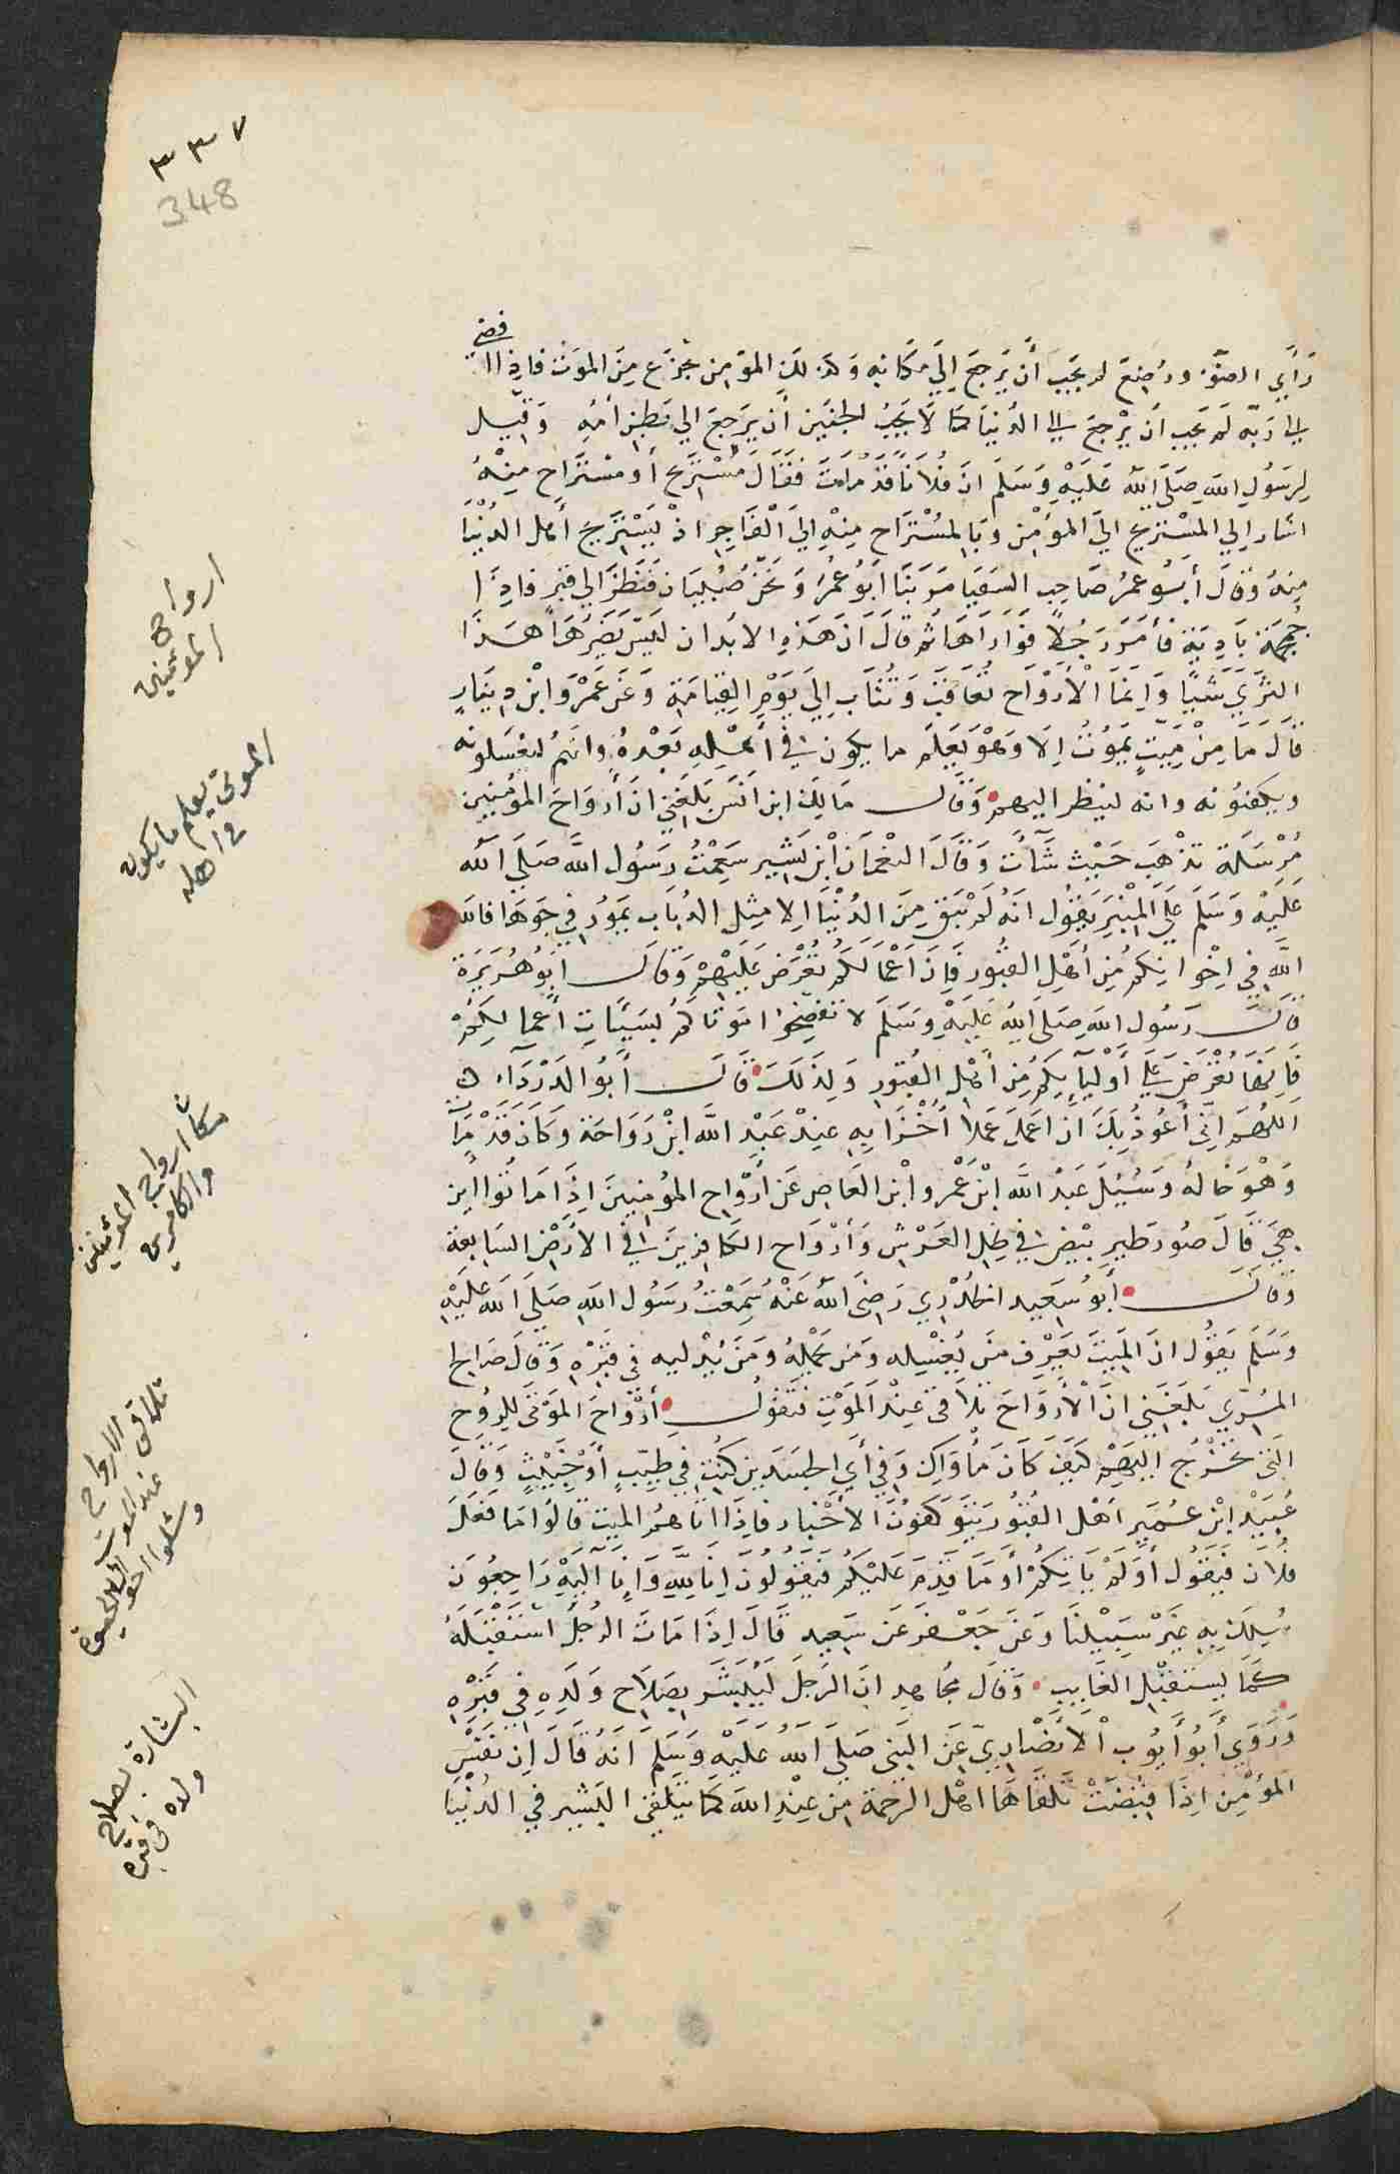 ٣٣٧
348
رَأَي الضوّء ورُضِعَ لم يحب أن يَرجعَ اِلَي مَكَانِه وَكذلك المؤمِن يجزَع مِنَ الموَت فاذِا افضي
الي رَبّه لَم يحب ان يَرْجعَ الي الدُنيا كما لا يحبُ الجَنيَن أن يَرجعَ الي بَطِن أمّهِ وَقيل
لِرَسُولِ اللهِ صَلَي اللهُ عَلَيْهِ وَسَلَم انَ فلاَنًا قَدْ مَاتَ فقَالَ مُسْتَريح أو مسْتَرَاح مِنْهُ
اشار اِلي المسْتريح اليَ المؤمْن وَبالمسُتَراح مِنْهِ اِليَ الْفَاجِرِ اذْ يَسْتَريح أهل الدُنْيَا
مِنهُ وَقالَ أبُو عمرُ صَاحِب السقيا مَرَ بنَا ابُو عُمرُ وَنَحْنُ صُبْيان فَنَظَرَ الي قبَر فاذَا
جمجمَة بَاديَة فأمَر رَجُلاً فَوارَاهَا ثم قَالَ انَ هَذهِ الابدان لَيسَ يَضرّهَا هَذَا
الثرَيَ شَيًا وَانمَا الأرْوَاح تعَاقَبَ وَتثَاب اِلَي يَوْمِ القِيامَةِ وَعَن عَمْرو ابْن دِينَارٍ
قالَ مَا مِنْ مَيّتٍ يَموُتُ اِلا وَهْوَ يَعَلَم ما يكون في أهْلِهِ بَعْدهُ وانهَمُ ليغسلونه
ويكفنوُنه وانه لينظر اليهم وَقَال مَالِك ابن انَس بَلَغَنيَ ان أرَوَاحَ المؤمَنِين
مُرْسَلَة تذهَب حَيْث شَآءَت وَقَالَ النعْمَان ابْن بَشِير سَمِعْتُ رَسُول اللهَ صَلَي الله
عَليَهْ وَسَلَم عَلَي المنْبَر يَقوُل انهُ لَمْ يَبَق مِنَ الدُنْيَا اِلا مثِل الذُبَاب يَمَوُر في جوهَا فالله
اللهَ في اِخْوانِكم مِن أهْلِ القبوُر فَاِنَ أعْمَالكُم تعُرَض عَليَهْم وَقال ابُوهُرَيَرَة
قال رَسُول اللهِ صَلَي اللهُ عَليَهْ وَسَلَم لا تفضِحوُا موَتَاكم بسَيّئَاتِ أعمالِكمُ
فَاِنهَا تعُرَض عَلَي أوْليَآيكُم مِن أهْل القُبوُر وَلِذَلكَ قال أبُو الدَرْدَآء
اللهُم انّي أعُوذُبِكَ ان اعمَل عَملا أخْزَا بِهِ عِنْد عَبْدِ اللهَ ابْن رَوَاحَة وَكَانَ قَدْ مَاتَ
وَهْوَ خالهُ وَسُئِلَ عَبْد اللهَ ابْن عَمْرو ابْن العَاص عَن أرْوَاح المؤمِنيِنَ اذَا مَا توُا اين
هِيَ قالَ صوُر طَيرِ بيْض في ظِلّ العَرْشِ وَأرْوَاح الكافِرِينَ في الأرَض السَابِعة
وَقَال أبوُ سَعِيد الخدُرْيِ رَضيَ اللهُ عَنْهُ سَمِعْتُ رَسُول اللهِ صَلَي اللهُ عَليَهْ
وَسَلَم يَقُول انَ الميَتَ يَعَرْف مَن يُغسِله وَمَن يحمْلهُ وَمَن يدُليه في قَبَرْهِ وَقالَ صَالح
المُريّ بَلغَنيَ انَ الأرْوَاح تلاقَي عِنْد الَموَتِ فتقوُل أرْوَاح الموَتيَ لِلرُوح
التي تخرُج اليَهْم كيَف كَان مَأواكِ وَفي أيِ الجسَدَين كنُتِ في طَيبّ أوْ خَبيْثٍ وَقالَ
عُبَيْد ابْن عُمَير أهْل القبوُر يتَوكفوُنَ الأخبار فاذَا اتاهمُ الميت قالوُا مَا فَعَلَ
فلان فيَقوُل أولَمْ يَاتِكُم أو مَا قَدِم عَليَكُم فَيقَوُلوُنَ انا للهِ وَانِا اليَهْ رَاجِعوُنَ
سُلِك بِه غَيَرْ سَبيْلنَا وَعَن جَعْفر عَن سَعِيد قالَ اِذَا مَات الرجُل اسْتَقْبلهُ
كَمَا يستقبل الغَايِبِ وَقَال مجاهِد انَ الرَجل ليَبُشر بصَلاَح وَلَدِهِ في قَبَرْهِ
وَرَوَي أبُو أيوُب الأنصَارِيّ عَن النَبيّ صَلَي اللهُ عَليَهْ وَسَلَم أنهُ قالَ اِن نفسَ
المؤمْن اذَا قبُضِتْ تلقَاهَا اهْل الرَحْمة مِن عِنْدِ اللهَ كما يتلقي البَشير في الدُنْيَا
ارواح
المؤمنين
الموتي يعلم ما يكون
في اهله
مكان ارواح المؤمنين
والكافرين
تلاقي الارواح
عند الموت
البشارة بصلاح
ولده في قبره